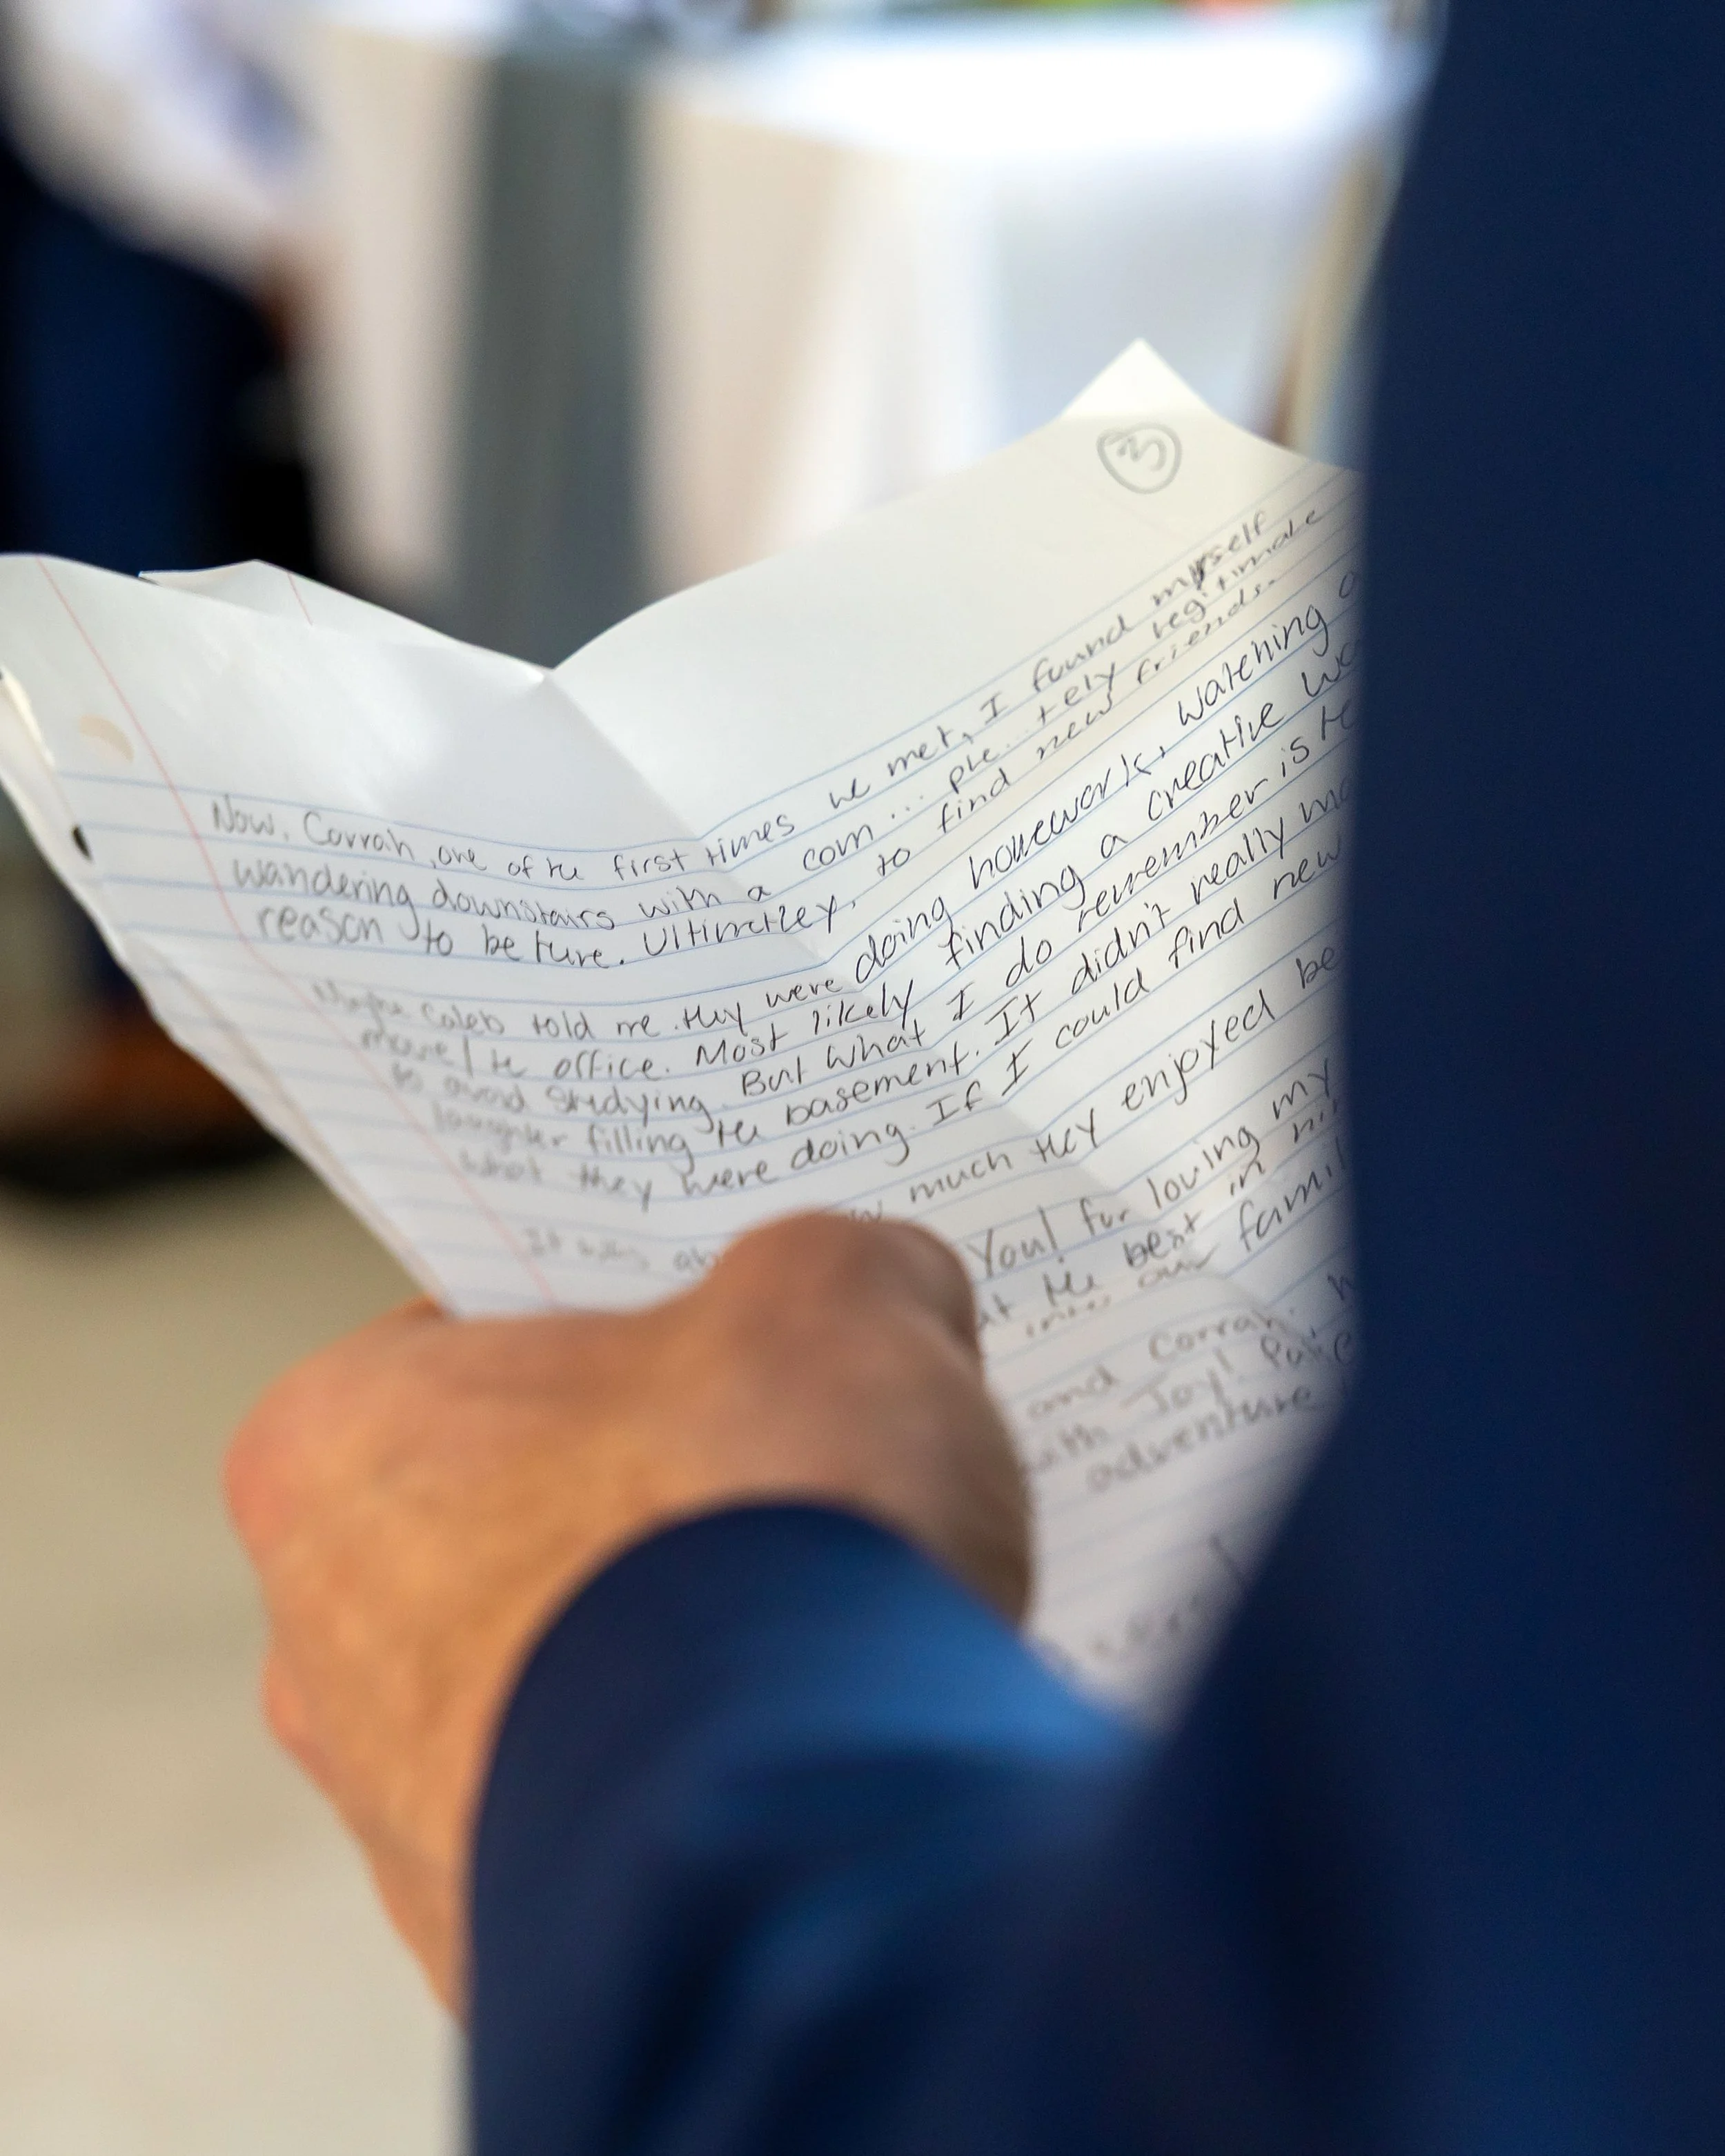 3
Now, Corrah, one of the first times we met, I found myself
wandering downstairs with a com... ple... tely legitimate
reason to be ture. Ultimatley, to find new friends.
Maybe Caleb told me they were doing homework, watching a
movie / the office. Most likely finding a creative
to avoid studying. But what I do remember is
laughter filling the basement. It didn't really
what they were doing. If I could find new
It was much they enjoyed be
You! for loving my
the best in
into our
and Corrah.
with Joy!
adventure